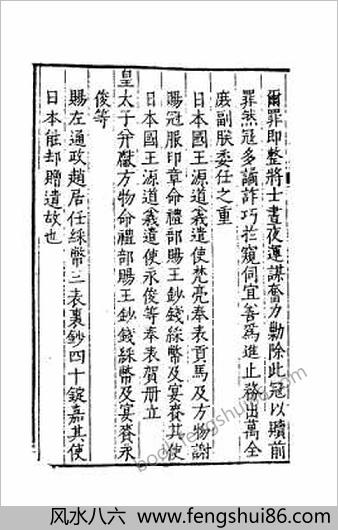 爾罪即整將士晝夜運謀奮力勦除此冦以贖前
罪然冦多譎詐巧於窺伺宜善為進止務出萬全
庻副朕委任之重
日本國王源道義遣使梵亮奉表貢馬及方物謝
賜冠服印章命禮部賜王鈔錢綵幣及宴賚其使
日本國王源道義遣使永俊等奉表賀册立
皇太子并獻方物命禮部賜王鈔錢綵幣及宴賚永
俊等
賜左通政趙居任綵幣三表裏鈔四十錠嘉其使
日本能却贈遺故也
book.fengshui86.com
风水八六 www.fengshui86.com